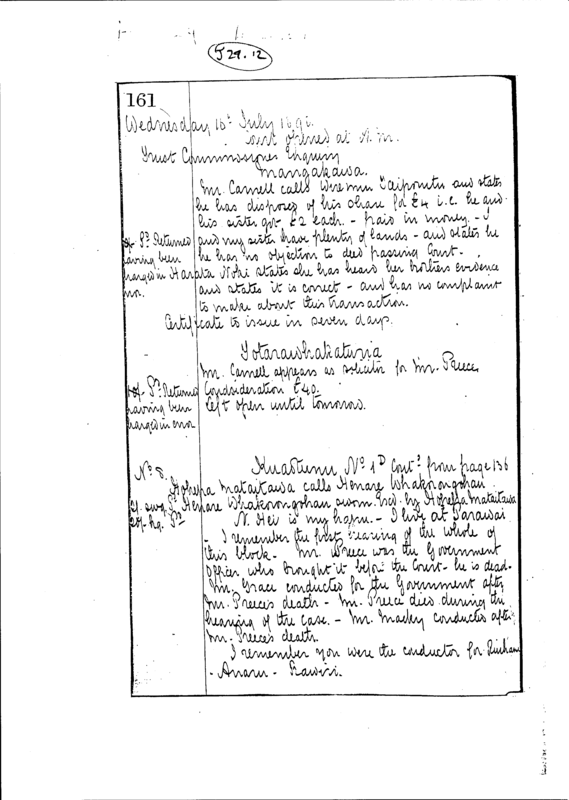 J 29.12
161
Wednesday 16th July 1890.
Court opened at A.M.
Trust Commissioners Enquiry
Mangakawa.
Mr. Carnell calls Wiremu and states
he has disposed of his share for £4 i.e. he and
his sister got £2 each. - paid in money. - I
and my sister have plenty of lands - and states he
he has no objection to deed passing Court.
Returned
having been
charged in
Noki states she has heard her brothers evidence
and states it is correct - and has no complaint
to make about this transaction.
Certificate to issue in seven days.
Totarawhakaturia
Mr. Carnell appears as solicitor for Mr. Preece
Consideration £40
left open until tomorrow.
Returned
having been
charged in error
No. 8.
Kuaotunu No 1D Contd from page 136
Hohepa Mataitawa calls Henare
Henare sworn. by Hohepa Mataitawa
N. Hei is my hapu. - I live at Parawai
- I remember the first hearing of the whole of
this block - Mr. Preece was the Government
Officer who brought it before the Court - he is dead -
Mr. Grace conducted for the Government after
Mr. Preece's death - Mr. Preece died during the
hearing of the case. - Mr. Mackey conducted after
Mr. Preece's death.
I remember you were the conductor for
- Anaru - Rawiri.